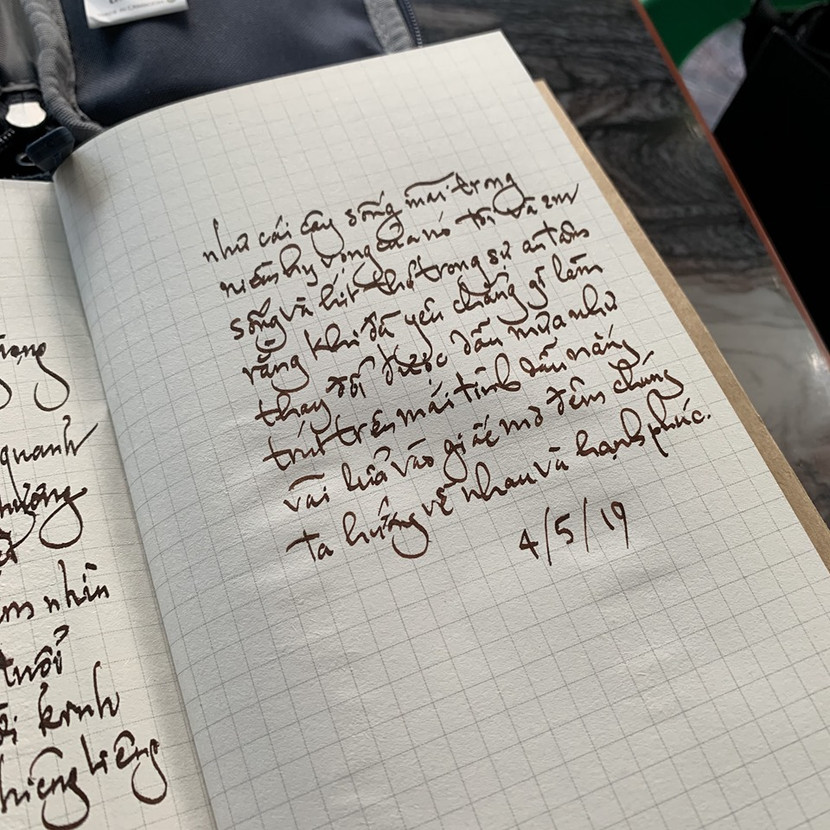 quanh
nhìn
tuổi
kinh
thiêng liêng
như cái cây sống mãi trong
niềm hy vọng của nó tôi và em
sống và hít thở trong sự an tâm
rằng khi đã yêu chẳng gì làm
thay đổi được dẫu mưa như
trút trên mái tình dẫu nắng
vãi lửa vào giấc mơ đêm chúng
ta hướng về nhau và hạnh phúc.
4/5/19